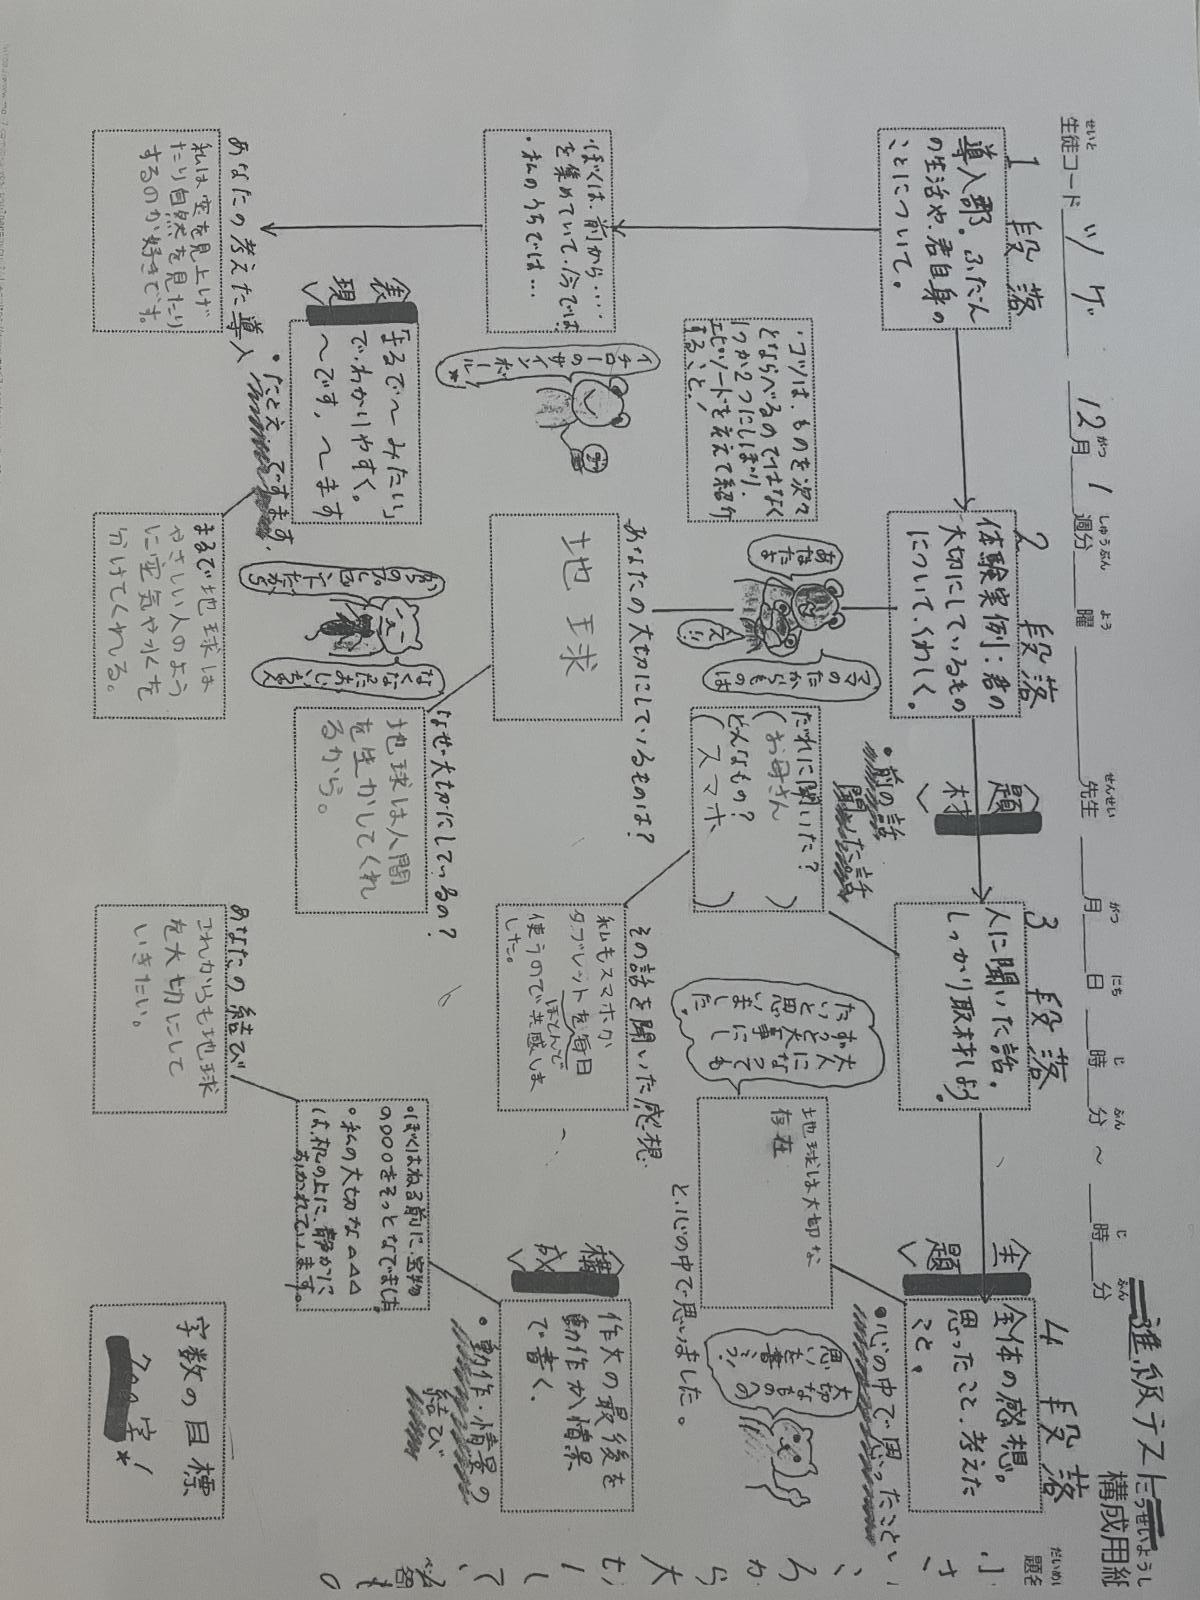 進級テスト
構成用紙
こうせいようし
生徒コード ツゲ 12月1週分 曜 先生 月 日 時 分 〜 時 分
せいと がつ しゅうぶん よう せんせい がつ にち じ ふん じ ふん
だいめい
題名
1段落
導入部。ふだん
の生活や、君自身の
ことについて。
2段落
体験実例：君の
大切にしているもの
について、くわしく。
題
材
3段落
人に聞いた話。
しっかり取材しよう。
4段落
全体の感想。
思ったこと、考えた
こと。
主
題
・ぼくは、前から・・・・
を集めていて、今では
・私のうちでは・・・
・コツは、ものを次々
とならべるのではなく
1つか2つにしぼり、
エピソードを交えて紹介
すること！
イチローのサインボール
あなたは
ママのたからものは
あなたの大切にしているものは？
地球
だれに聞いた？
（お母さん）
どんなもの？
（スマホ）
・前の話
聞いた話
その話を聞いた感想
私もスマホか
タブレットを毎日
ほとんど
使うので共感しま
した。
大人になっても
大事にし
たいと思いまし
た。
地球は大切な
存在
と、心の中で思いました。
・心の中で思ったこと
大切なものへの
思いを書こう！
あなたの考えた導入
私は空を見上げ
たり自然を見たり
するのが好きです。
表
現
「まるで〜みたい」
でわかりやすく。
〜です。〜ます
・たとえ
まるで地球は
やさしい人のよう
に空気や水を
分けてくれる。
なぜ大切にしているの？
地球は人間
を生かしてくれ
るから。
あなたの結び
これからも地球
を大切にして
いきたい。
・ぼくはねる前に、宝物
の〇〇〇をそっとなでました。
・私の大切な△△△
は、机の上に、静かに
おかれています。
構
成
作文の最後を
動作か情景
で書く。
・動作・情景の
結び
字数の目標